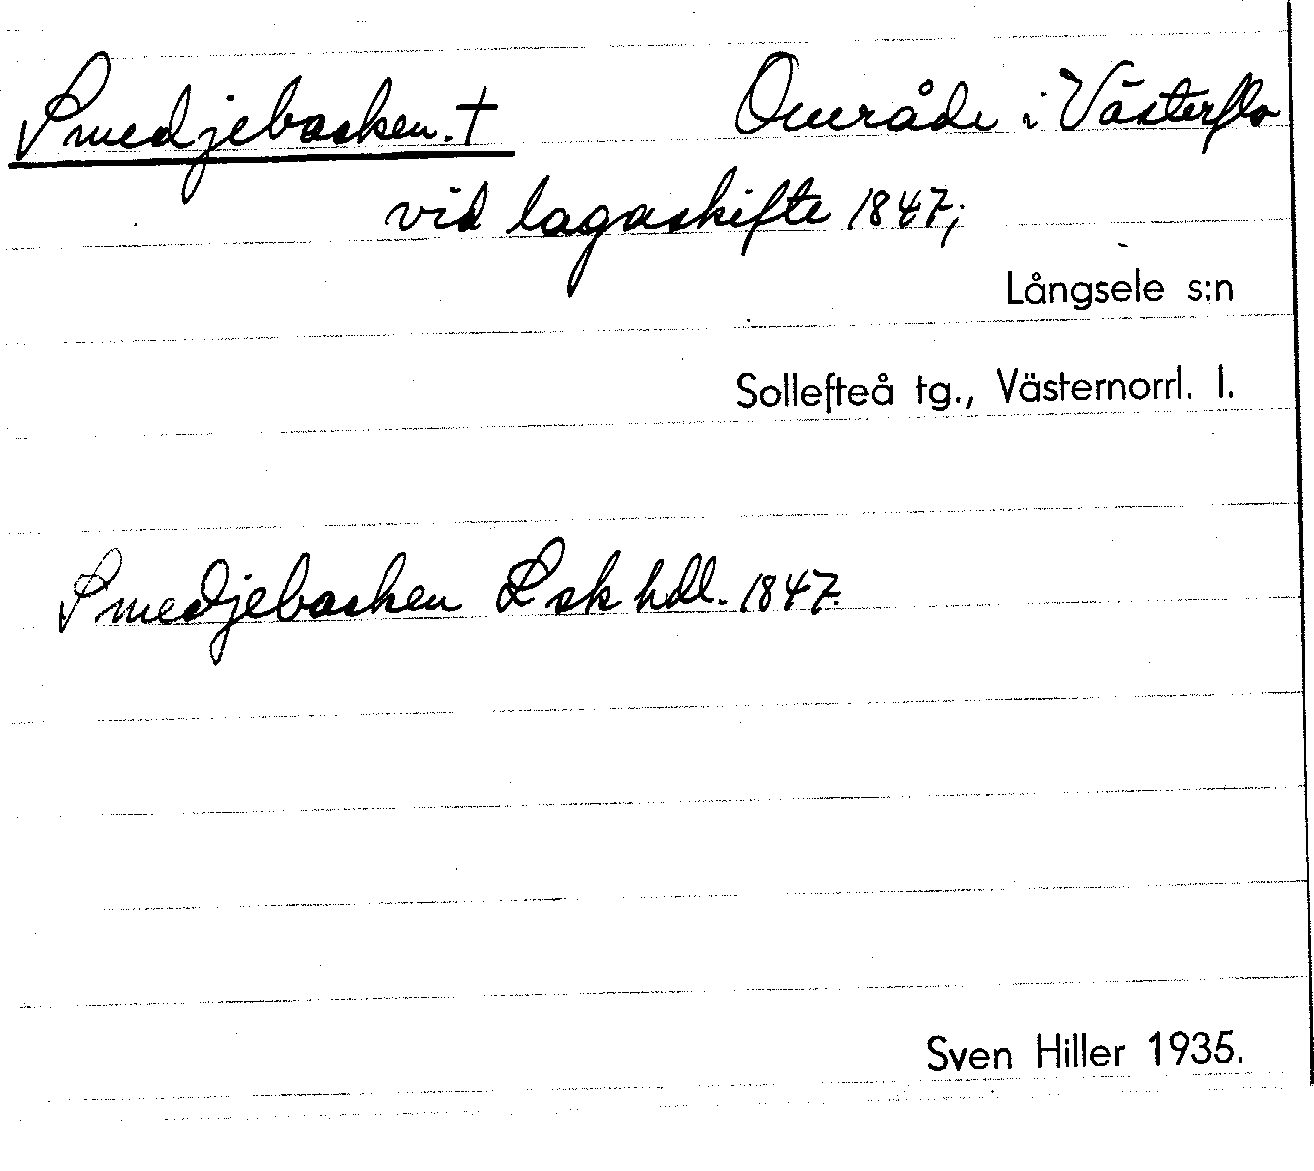 Smedjebacken. † Område i Västerflo
vid lagaskifte 1847;
Långsele s:n
Sollefteå tg., Västernorrl. l.
Smedjebacken Lsk hdl. 1847.
Sven Hiller 1935.